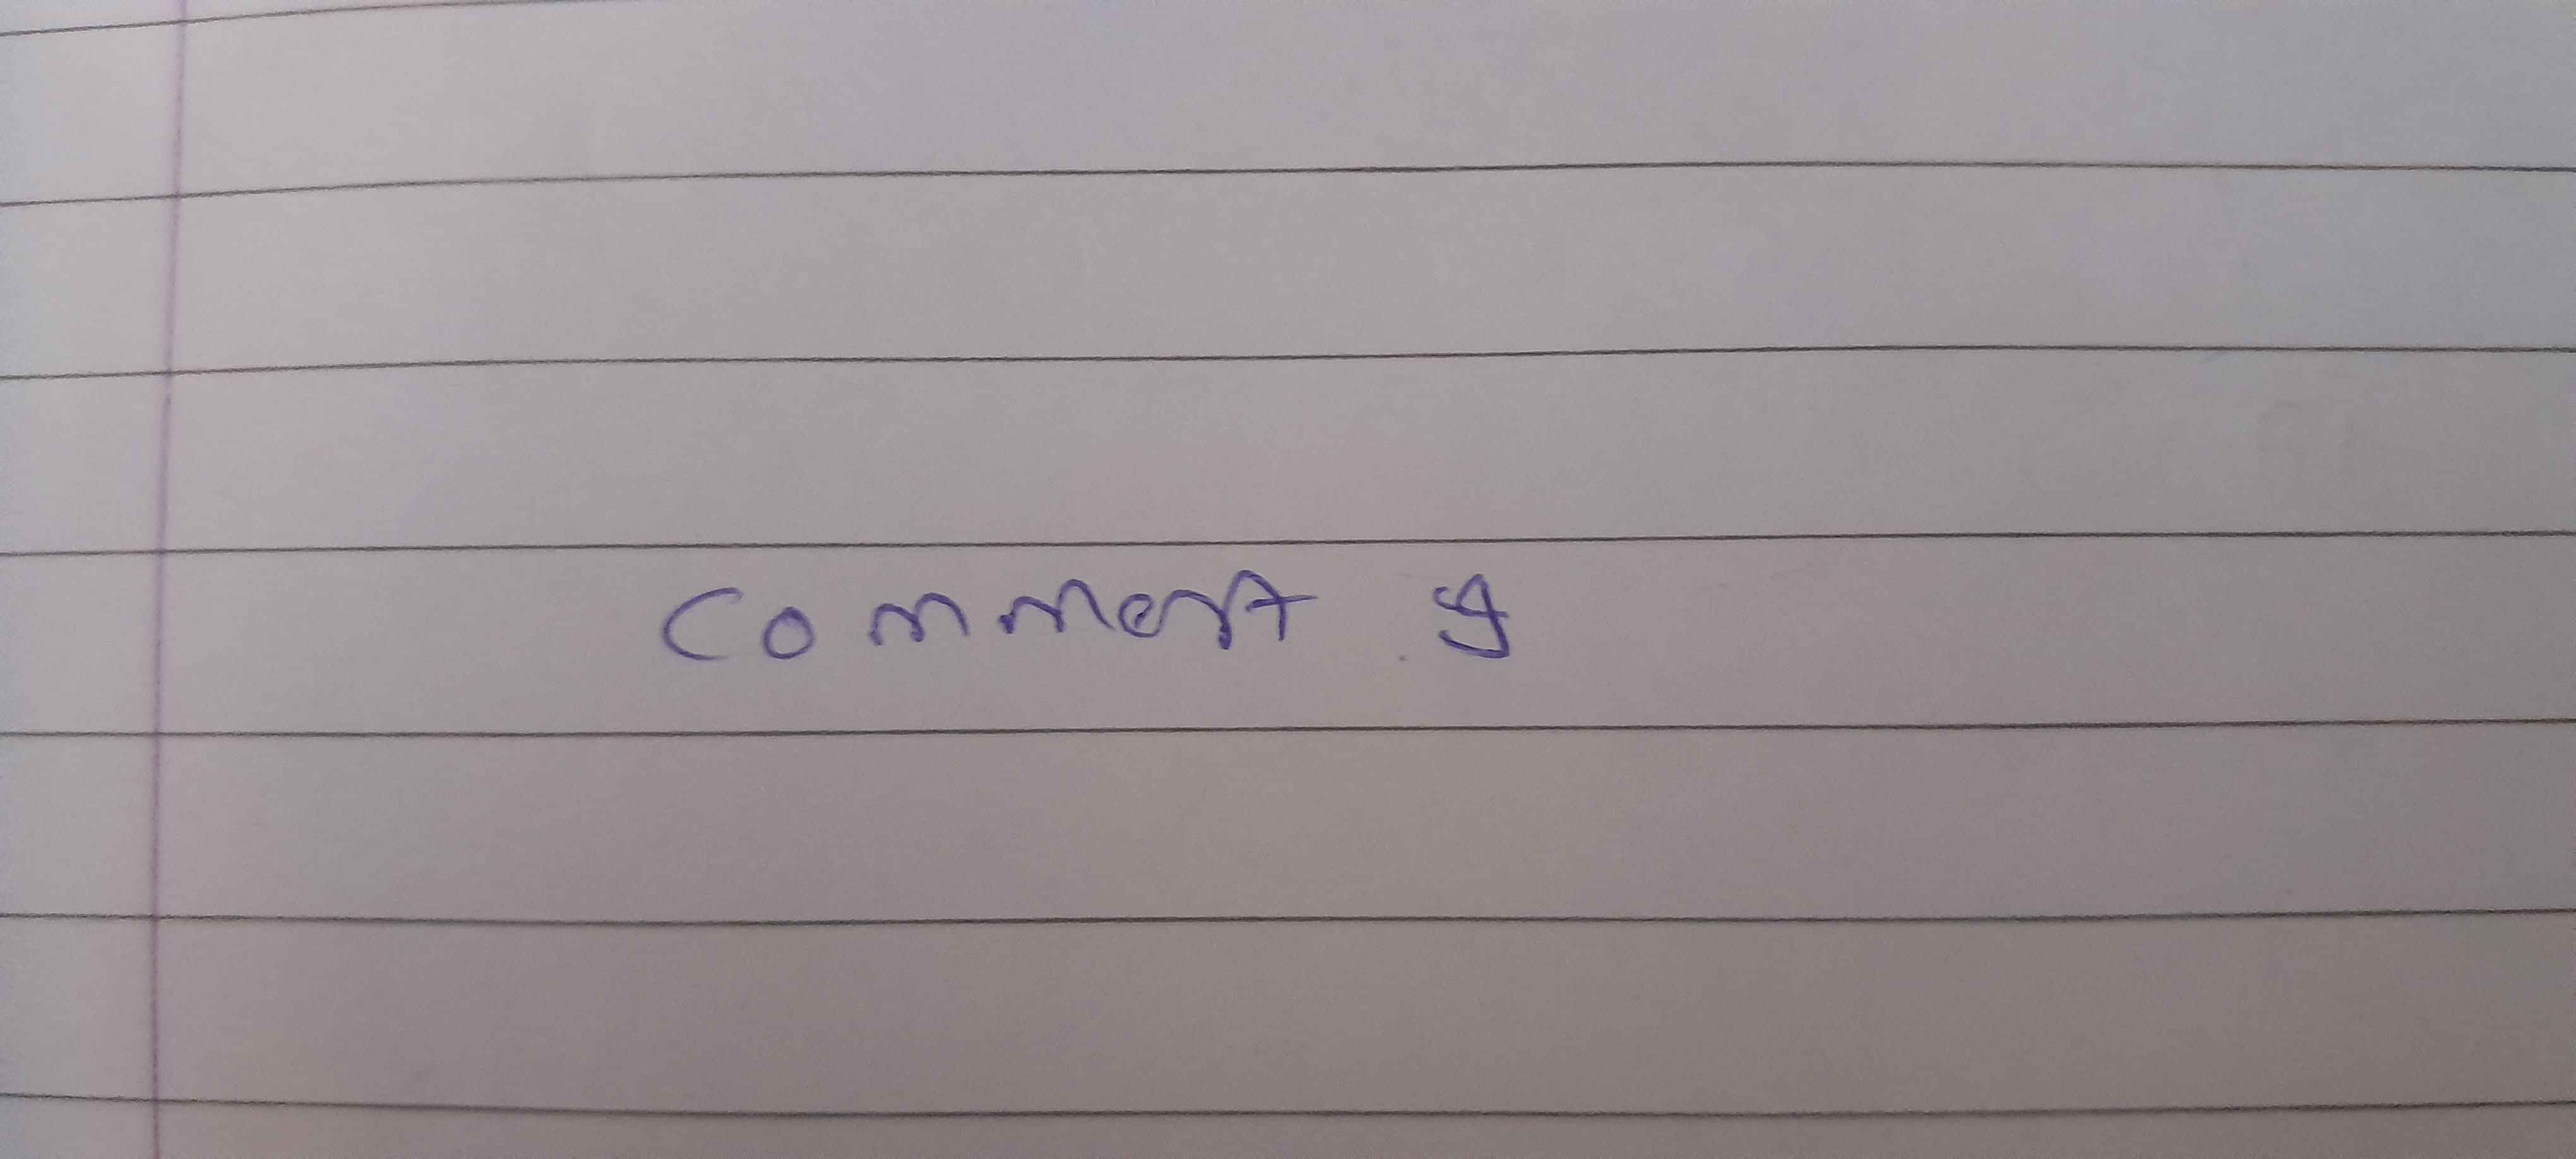 Comment 9